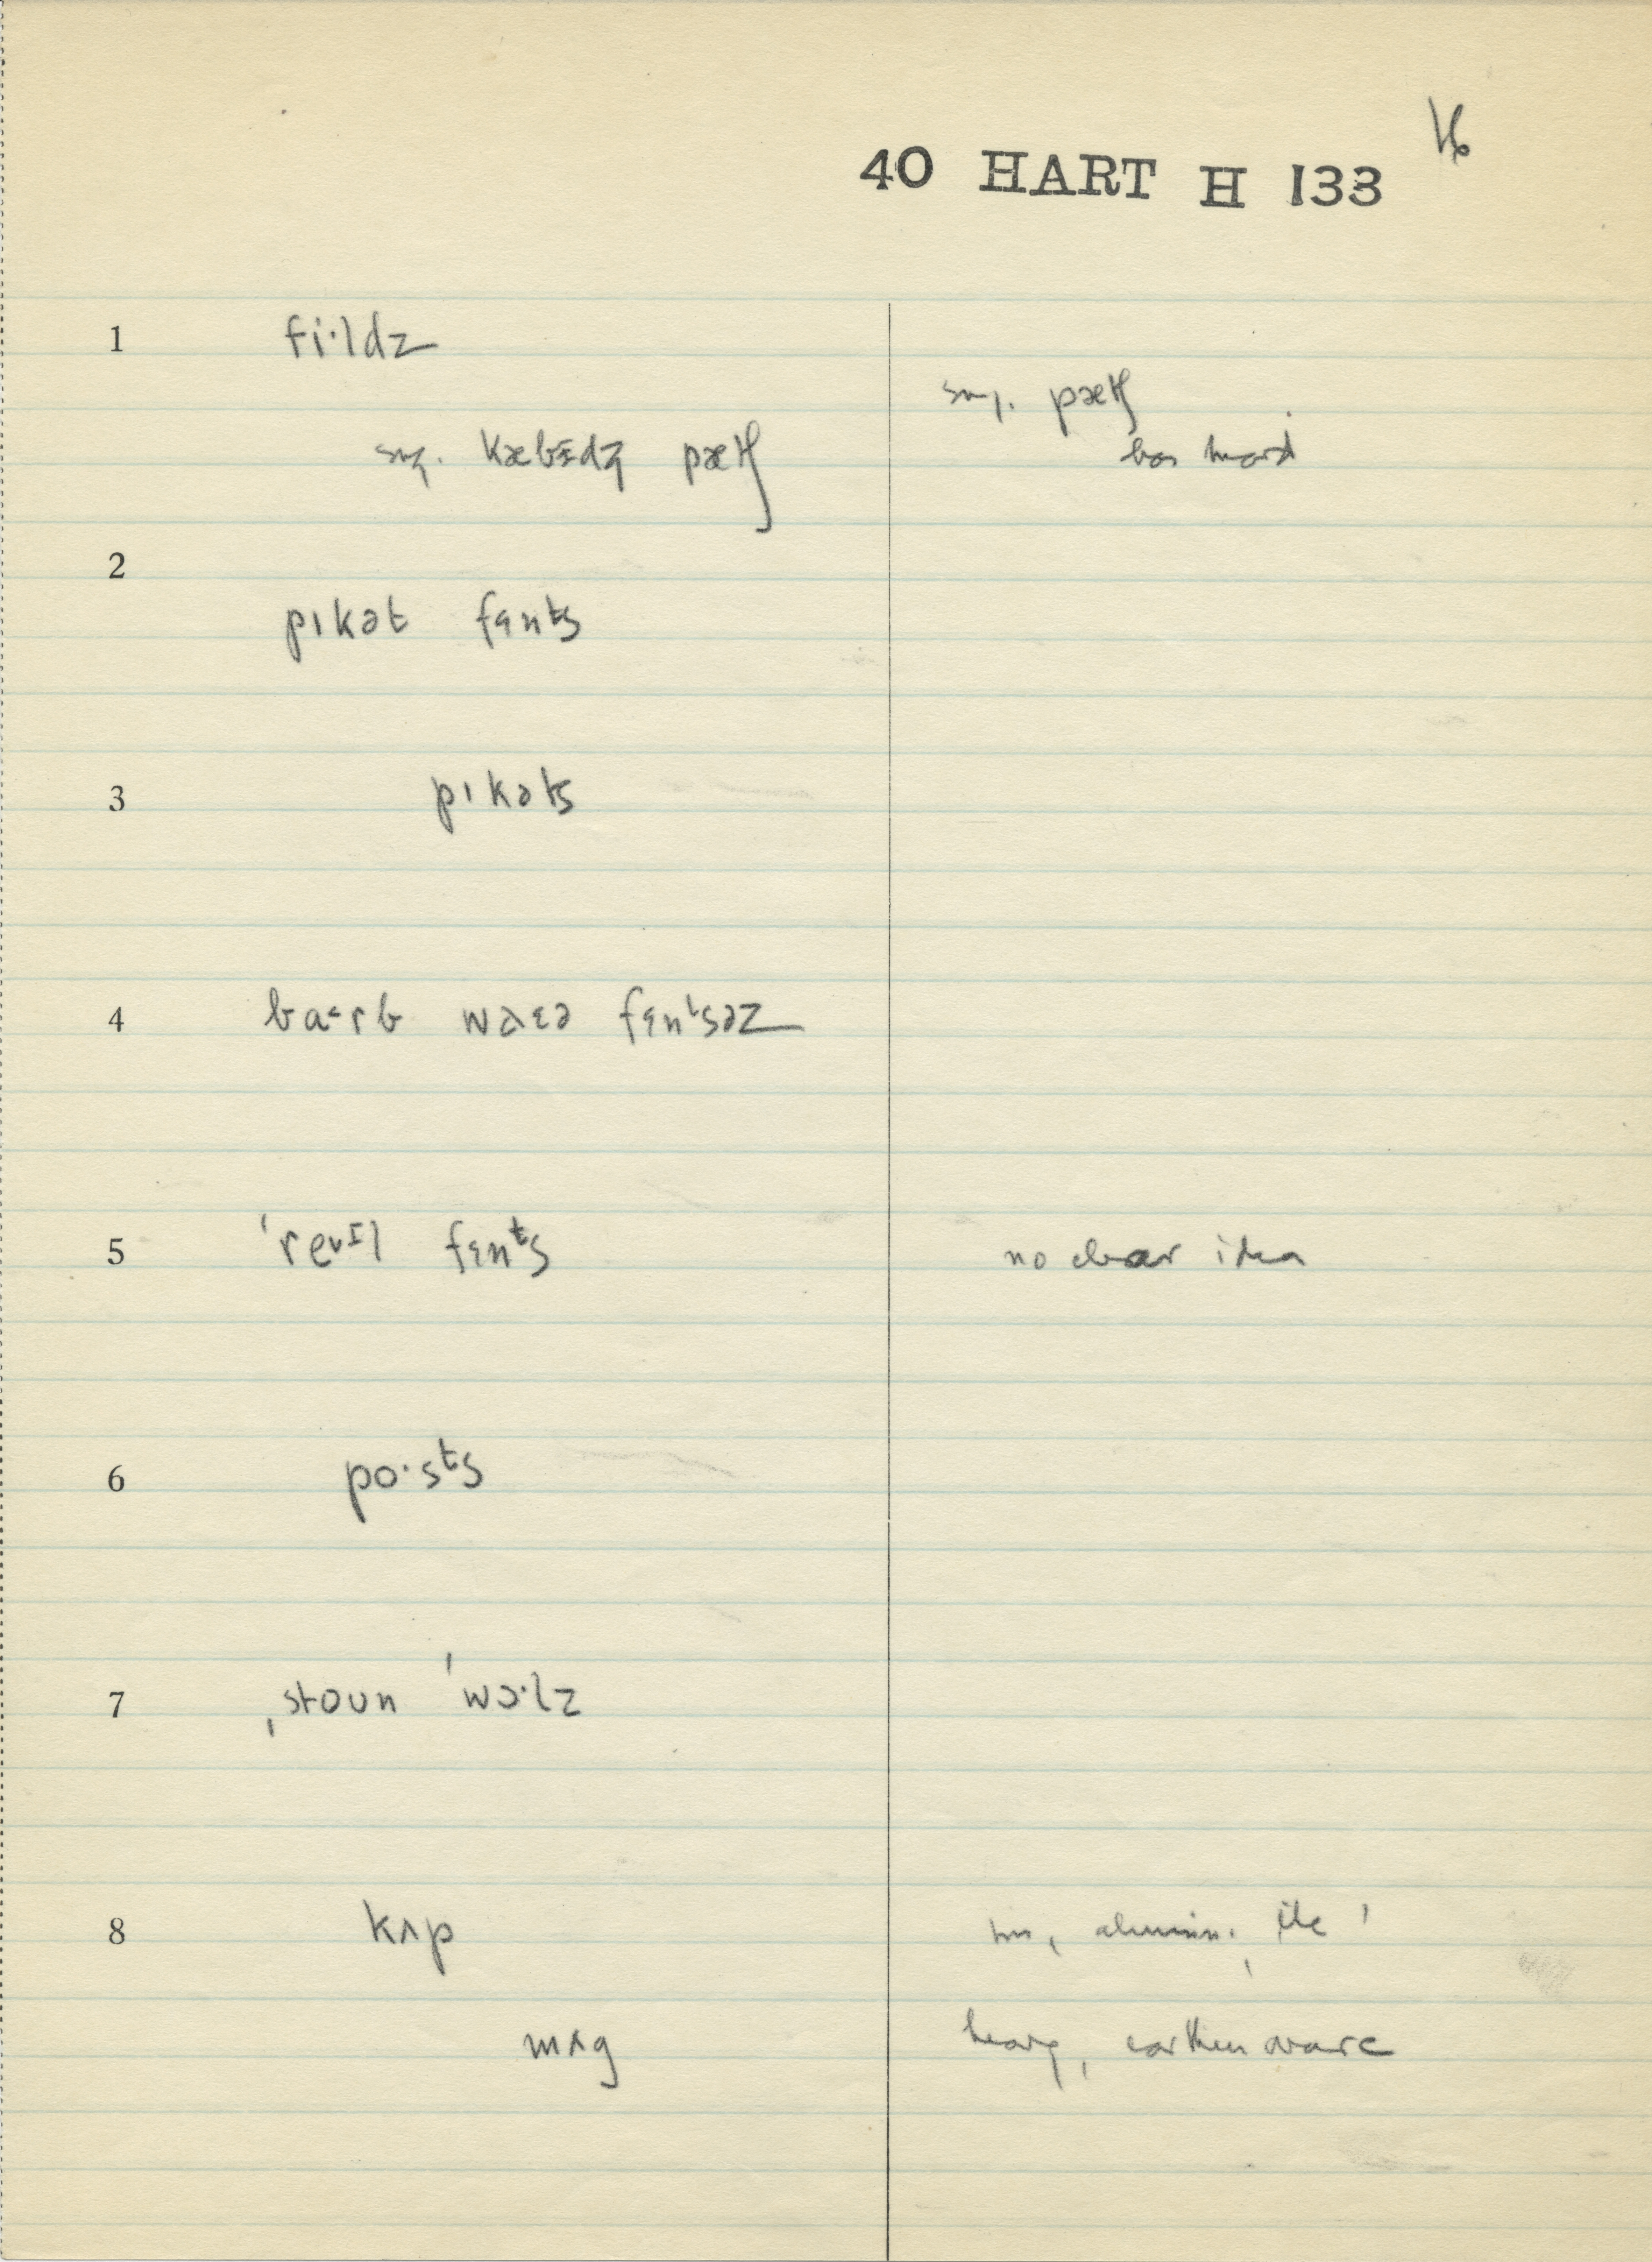 16
40 HART H 133
1 fi·ldz
sug. pætʃ
sug. kæbɪdʒ pætʃ
has heard
2
pɪkət fɛnts
3 pɪkəts
4 ba˂rb waɛə fɛnᵗsəz
5 'revɪl fɛnᵗs no clear idea
6 po·sᵗs
7 ˌstoun 'wɔ·lz
8 kʌp tin, alumin., etc
mʌg heavy, earthenware